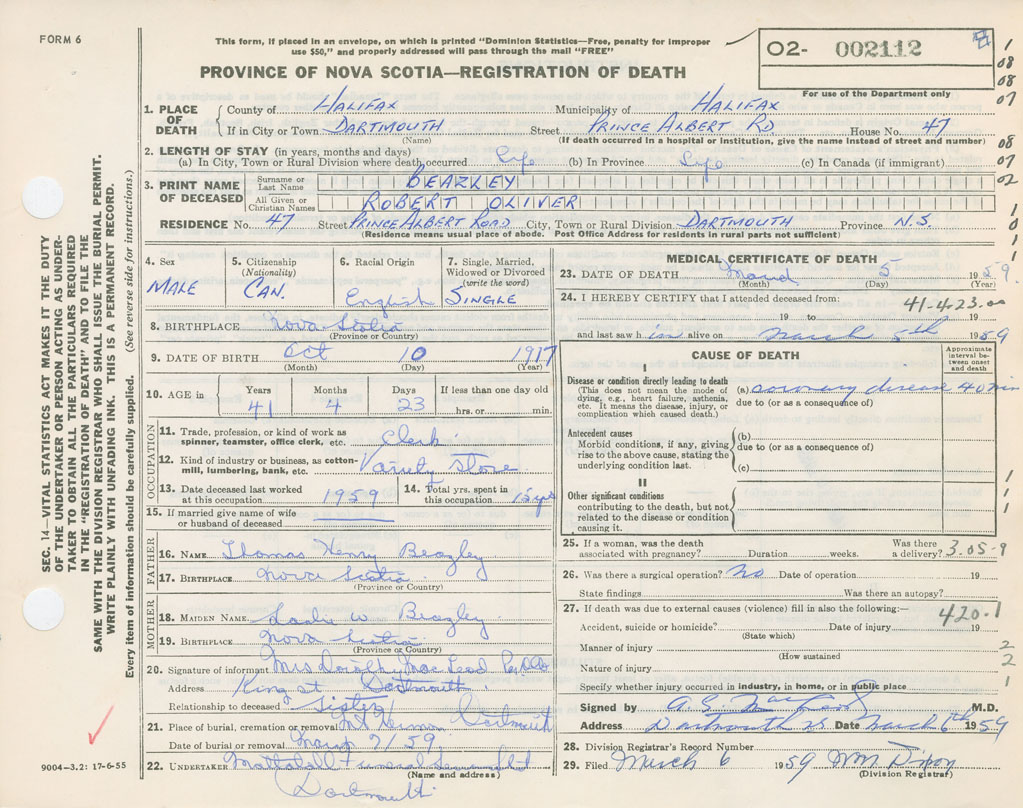 FORM 6
This form, if placed in an envelope, on which is printed "Dominion Statistics—Free, penalty for improper
use $50," and properly addressed will pass through the mail "FREE"
PROVINCE OF NOVA SCOTIA—REGISTRATION OF DEATH
02- 002112
For use of the Department only
1. PLACE OF DEATH
County of HALIFAX Municipality of HALIFAX
If in City or Town DARTMOUTH Street PRINCE ALBERT RD. House No. 47
(Name) (If death occurred in a hospital or institution, give the name instead of street and number)
2. LENGTH OF STAY (in years, months and days)
(a) In City, Town or Rural Division where death occurred Life (b) In Province Life (c) In Canada (if immigrant)
3. PRINT NAME OF DECEASED
Surname or Last Name BEAZLEY
All Given or Christian Names ROBERT OLIVER
RESIDENCE No. 47 Street PRINCE ALBERT ROAD City, Town or Rural Division DARTMOUTH Province N.S.
(Residence means usual place of abode. Post Office Address for residents in rural parts not sufficient)
4. Sex MALE
5. Citizenship (Nationality) CAN.
6. Racial Origin English
7. Single, Married, Widowed or Divorced (write the word) SINGLE
8. BIRTHPLACE Nova Scotia
(Province or Country)
9. DATE OF BIRTH Oct 10 1917
(Month) (Day) (Year)
10. AGE in Years 41 Months 4 Days 23 If less than one day old
hrs. or min.
OCCUPATION
11. Trade, profession, or kind of work as
spinner, teamster, office clerk, etc. Clerk.
12. Kind of industry or business, as cotton-
mill, lumbering, bank, etc. Variety Store
13. Date deceased last worked
at this occupation. 1959
14. Total yrs. spent in
this occupation 15 yrs
15. If married give name of wife
or husband of deceased
FATHER
16. NAME Thomas Henry Beazley
17. BIRTHPLACE Nova Scotia
(Province or Country)
MOTHER
18. MAIDEN NAME W Beazley
19. BIRTHPLACE Nova Scotia
(Province or Country)
20. Signature of informant Mrs Dorothy MacLeod
Address King St. Dartmouth.
Relationship to deceased Sister
21. Place of burial, cremation or removal Mt Hermon Dartmouth
Date of burial or removal March 7/59
22. UNDERTAKER Mattatall Funeral
(Name and address)
Dartmouth.
MEDICAL CERTIFICATE OF DEATH
23. DATE OF DEATH March 5 1959.
(Month) (Day)
24. I HEREBY CERTIFY that I attended deceased from: 41-4-23-00
19 to 19
and last saw h im alive on March 5th 1959
CAUSE OF DEATH
Approximate interval between onset and death
I
Disease or condition directly leading to death (a) coronary disease 40 min
(This does not mean the mode of
dying, e.g., heart failure, asthenia,
etc. It means the disease, injury, or
complication which caused death.)
due to (or as a consequence of)
Antecedent causes (b)
Morbid conditions, if any, giving
rise to the above cause, stating the
underlying condition last.
due to (or as a consequence of)
(c)
II
Other significant conditions
contributing to the death, but not
related to the disease or condition
causing it.
25. If a woman, was the death
associated with pregnancy? Duration weeks. Was there
a delivery? 3-05-9
26. Was there a surgical operation? No Date of operation 19
State findings Was there an autopsy?
27. If death was due to external causes (violence) fill in also the following:— 420.1
Accident, suicide or homicide? Date of injury 19
(State which)
Manner of injury
(How sustained
Nature of injury
Specify whether injury occurred in industry, in home, or in public place
Signed by M.D.
Address Dartmouth NS Date March 6th 1959
28. Division Registrar's Record Number
29. Filed March 6 1959 Wm Dixon
(Division Registrar)
SEC. 14—VITAL STATISTICS ACT MAKES IT THE DUTY
OF THE UNDERTAKER OR PERSON ACTING AS UNDER-
TAKER TO OBTAIN ALL THE PARTICULARS REQUIRED
IN THE "REGISTRATION OF DEATH" AND TO FILE THE
SAME WITH THE DIVISION REGISTRAR WHO SHALL ISSUE THE BURIAL PERMIT.
WRITE PLAINLY WITH UNFADING INK. THIS IS A PERMANENT RECORD.
Every item of information should be carefully supplied. (See reverse side for instructions.)
9004-3.2: 17-6-55
1
08
08
07
08
07
02
1
1
0
1
1
1
1
1
2
2
1